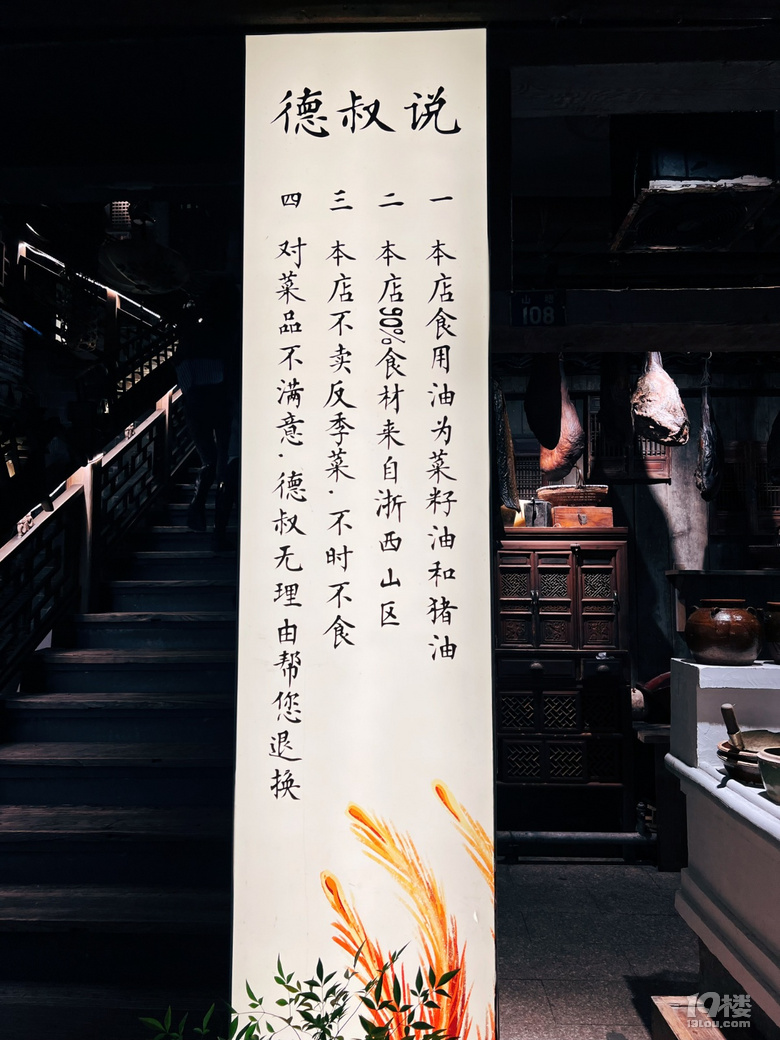 德叔说
一 本店食用油为菜籽油和猪油
二 本店90%食材来自浙西山区
三 本店不卖反季菜·不时不食
四 对菜品不满意·德叔无理由帮您退换
108
19楼
19lou.com